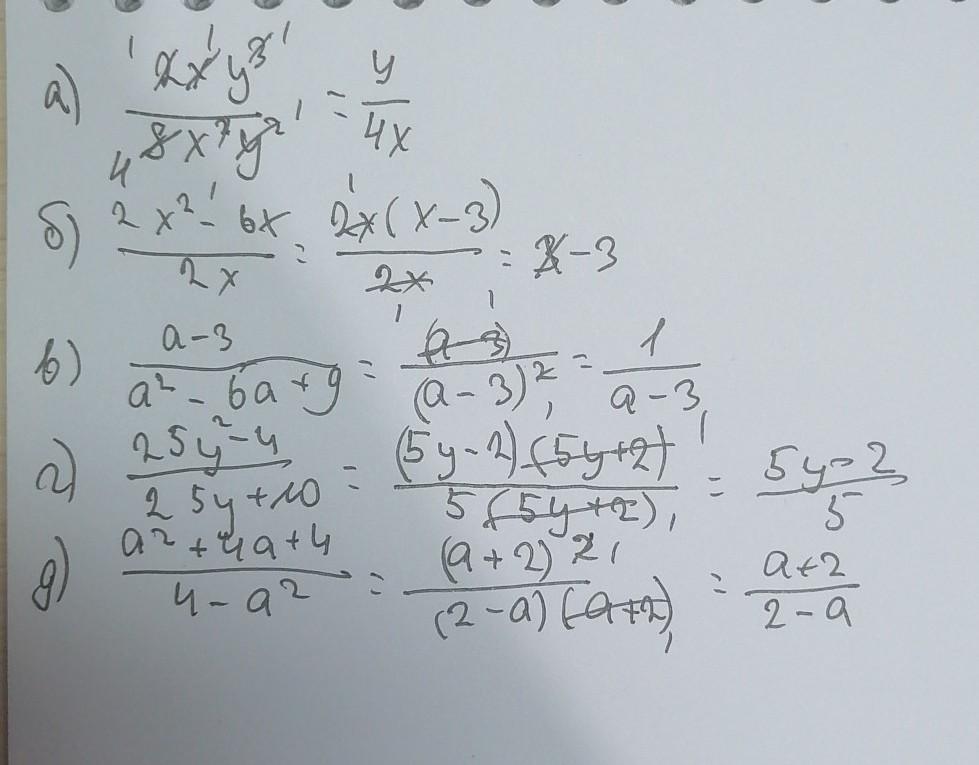 а) 2xy³/8x²y² = y/4x
б) 2x² - 6x/2x = 2x(x-3)/2x = x-3
в) a-3/a² - 6a+9 = (a-3)/(a-3)² = 1/a-3
г) 25y²-4/25y+10 = (5y-2)(5y+2)/5(5y+2) = 5y-2/5
д) a²+4a+4/4-a² = (a+2)²/(2-a)(a+2) = a+2/2-a